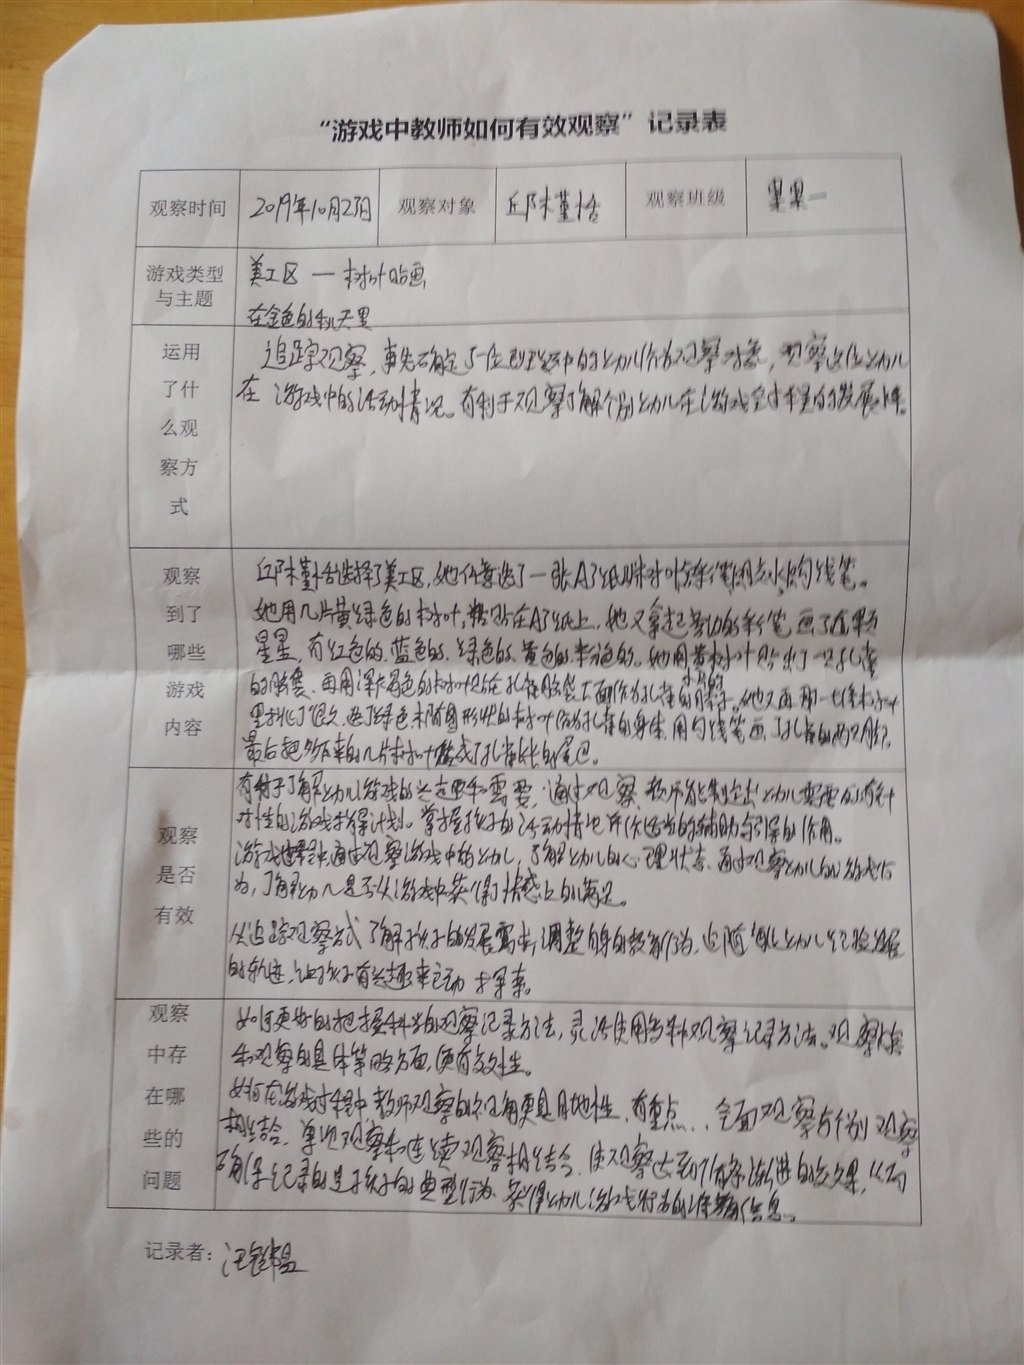 “游戏中教师如何有效观察”记录表
观察时间 2019年10月25日 观察对象 邱林堇恬 观察班级 果果一
游戏类型与主题
美工区 — 树叶贴画
在金色的秋天里
运用了什么观察方式
追踪观察,事先确定5-位到区中的幼儿作为观察对象,观察这位幼儿
在游戏中的活动情况。有利于观察了解个别幼儿在游戏全过程的发展
观察到了哪些游戏内容
选择了美工区,她任意选了一张A4纸 树叶 彩笔 勾线笔。
她用几片黄绿色的树叶,粘贴在A4纸上,她又拿起 的彩笔,画了
星星,有红色的、蓝色的、绿色的、黄色的、紫色的。她用黄树叶贴出了一只孔雀
的 再用深 色的树叶贴在孔雀 下面作为孔雀的脖子。她又再那一堆树叶
里挑了很久,选了绿色 形状的树叶作为孔雀的身体,用勾线笔画了孔雀的两只脚,
最后把 的几片树叶 成了孔雀 的尾巴。
观察是否有效
有利于了解幼儿游戏的兴趣和需要,通过观察,教师能制定出幼儿需要的有针
对性的游戏指导计划。掌握孩子的活动情况并作适当的辅助与引导的作用。
游戏过程中通过观察游戏中的幼儿,了解幼儿的心理状态,通过观察幼儿的游戏行
为,了解幼儿是否从游戏中获得了情感上的满足。
从追踪观察方式了解孩子的发展需求,调整自身的教育行为,追随 幼儿经验发展
的轨迹,让孩子有兴趣来主动去探索。
观察中存在哪些的问题
如何更好的把握科学的观察记录方法,灵活使用多种观察记录方法。观察
和观察的具体策略方面,更有效性。
如何在游戏过程中教师观察的视角更具目的性、有重点... 全面观察与个别观察
相结合,单次观察和连续观察相结合,使观察达到循序渐进的效果,从而
确保记录的是孩子的典型行为,获得幼儿游戏行为的准确信息。
记录者: